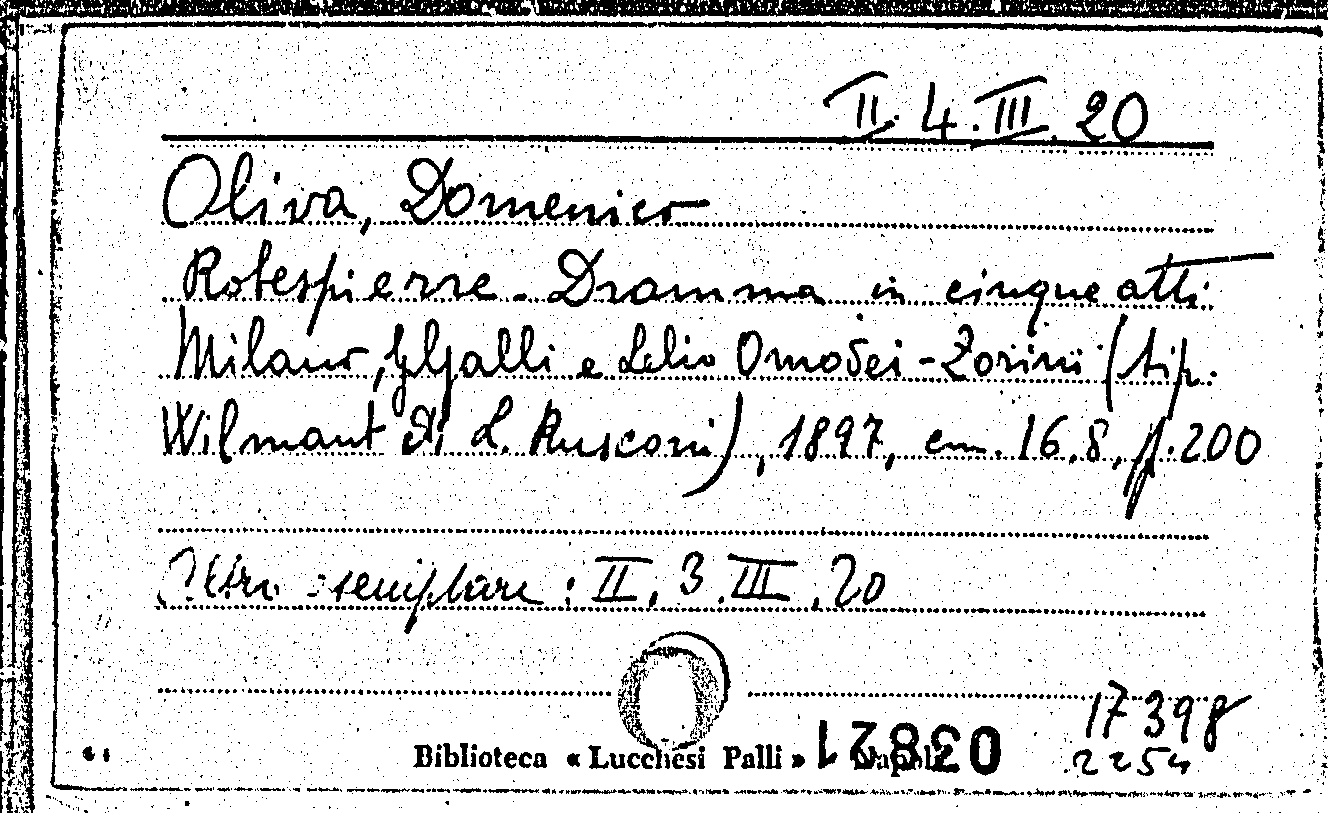 II. 4. III. 20
Oliva, Domenico
Robespierre. Dramma in cinque atti
Milano, Galli e Lelio Omodei-Zorini (tip.
Wilmant di L. Rusconi), 1897, cm. 16,8, p. 200
Altro esemplare: II. 3. III. 20
17398
Biblioteca « Lucchesi Palli » Napoli
2254